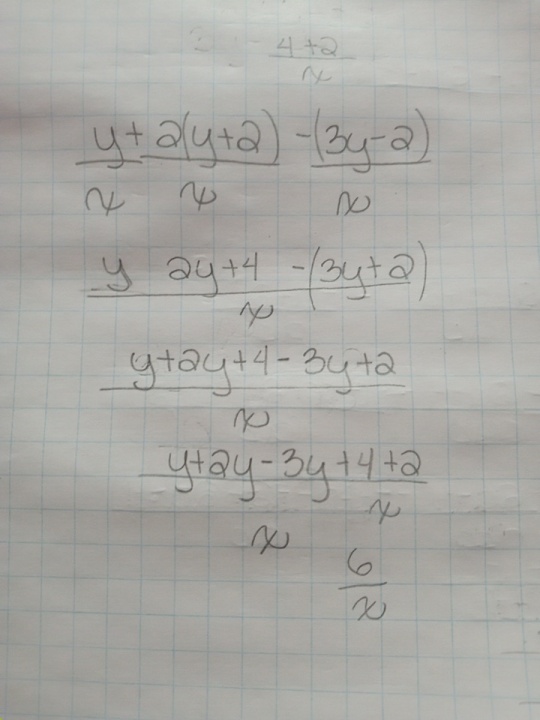 4+2
x
y + 2(y+2) - (3y-2)
x x x
y 2y+4 -(3y+2)
x
y+2y+4 - 3y+2
x
y+2y-3y+4+2
x
x
6
x